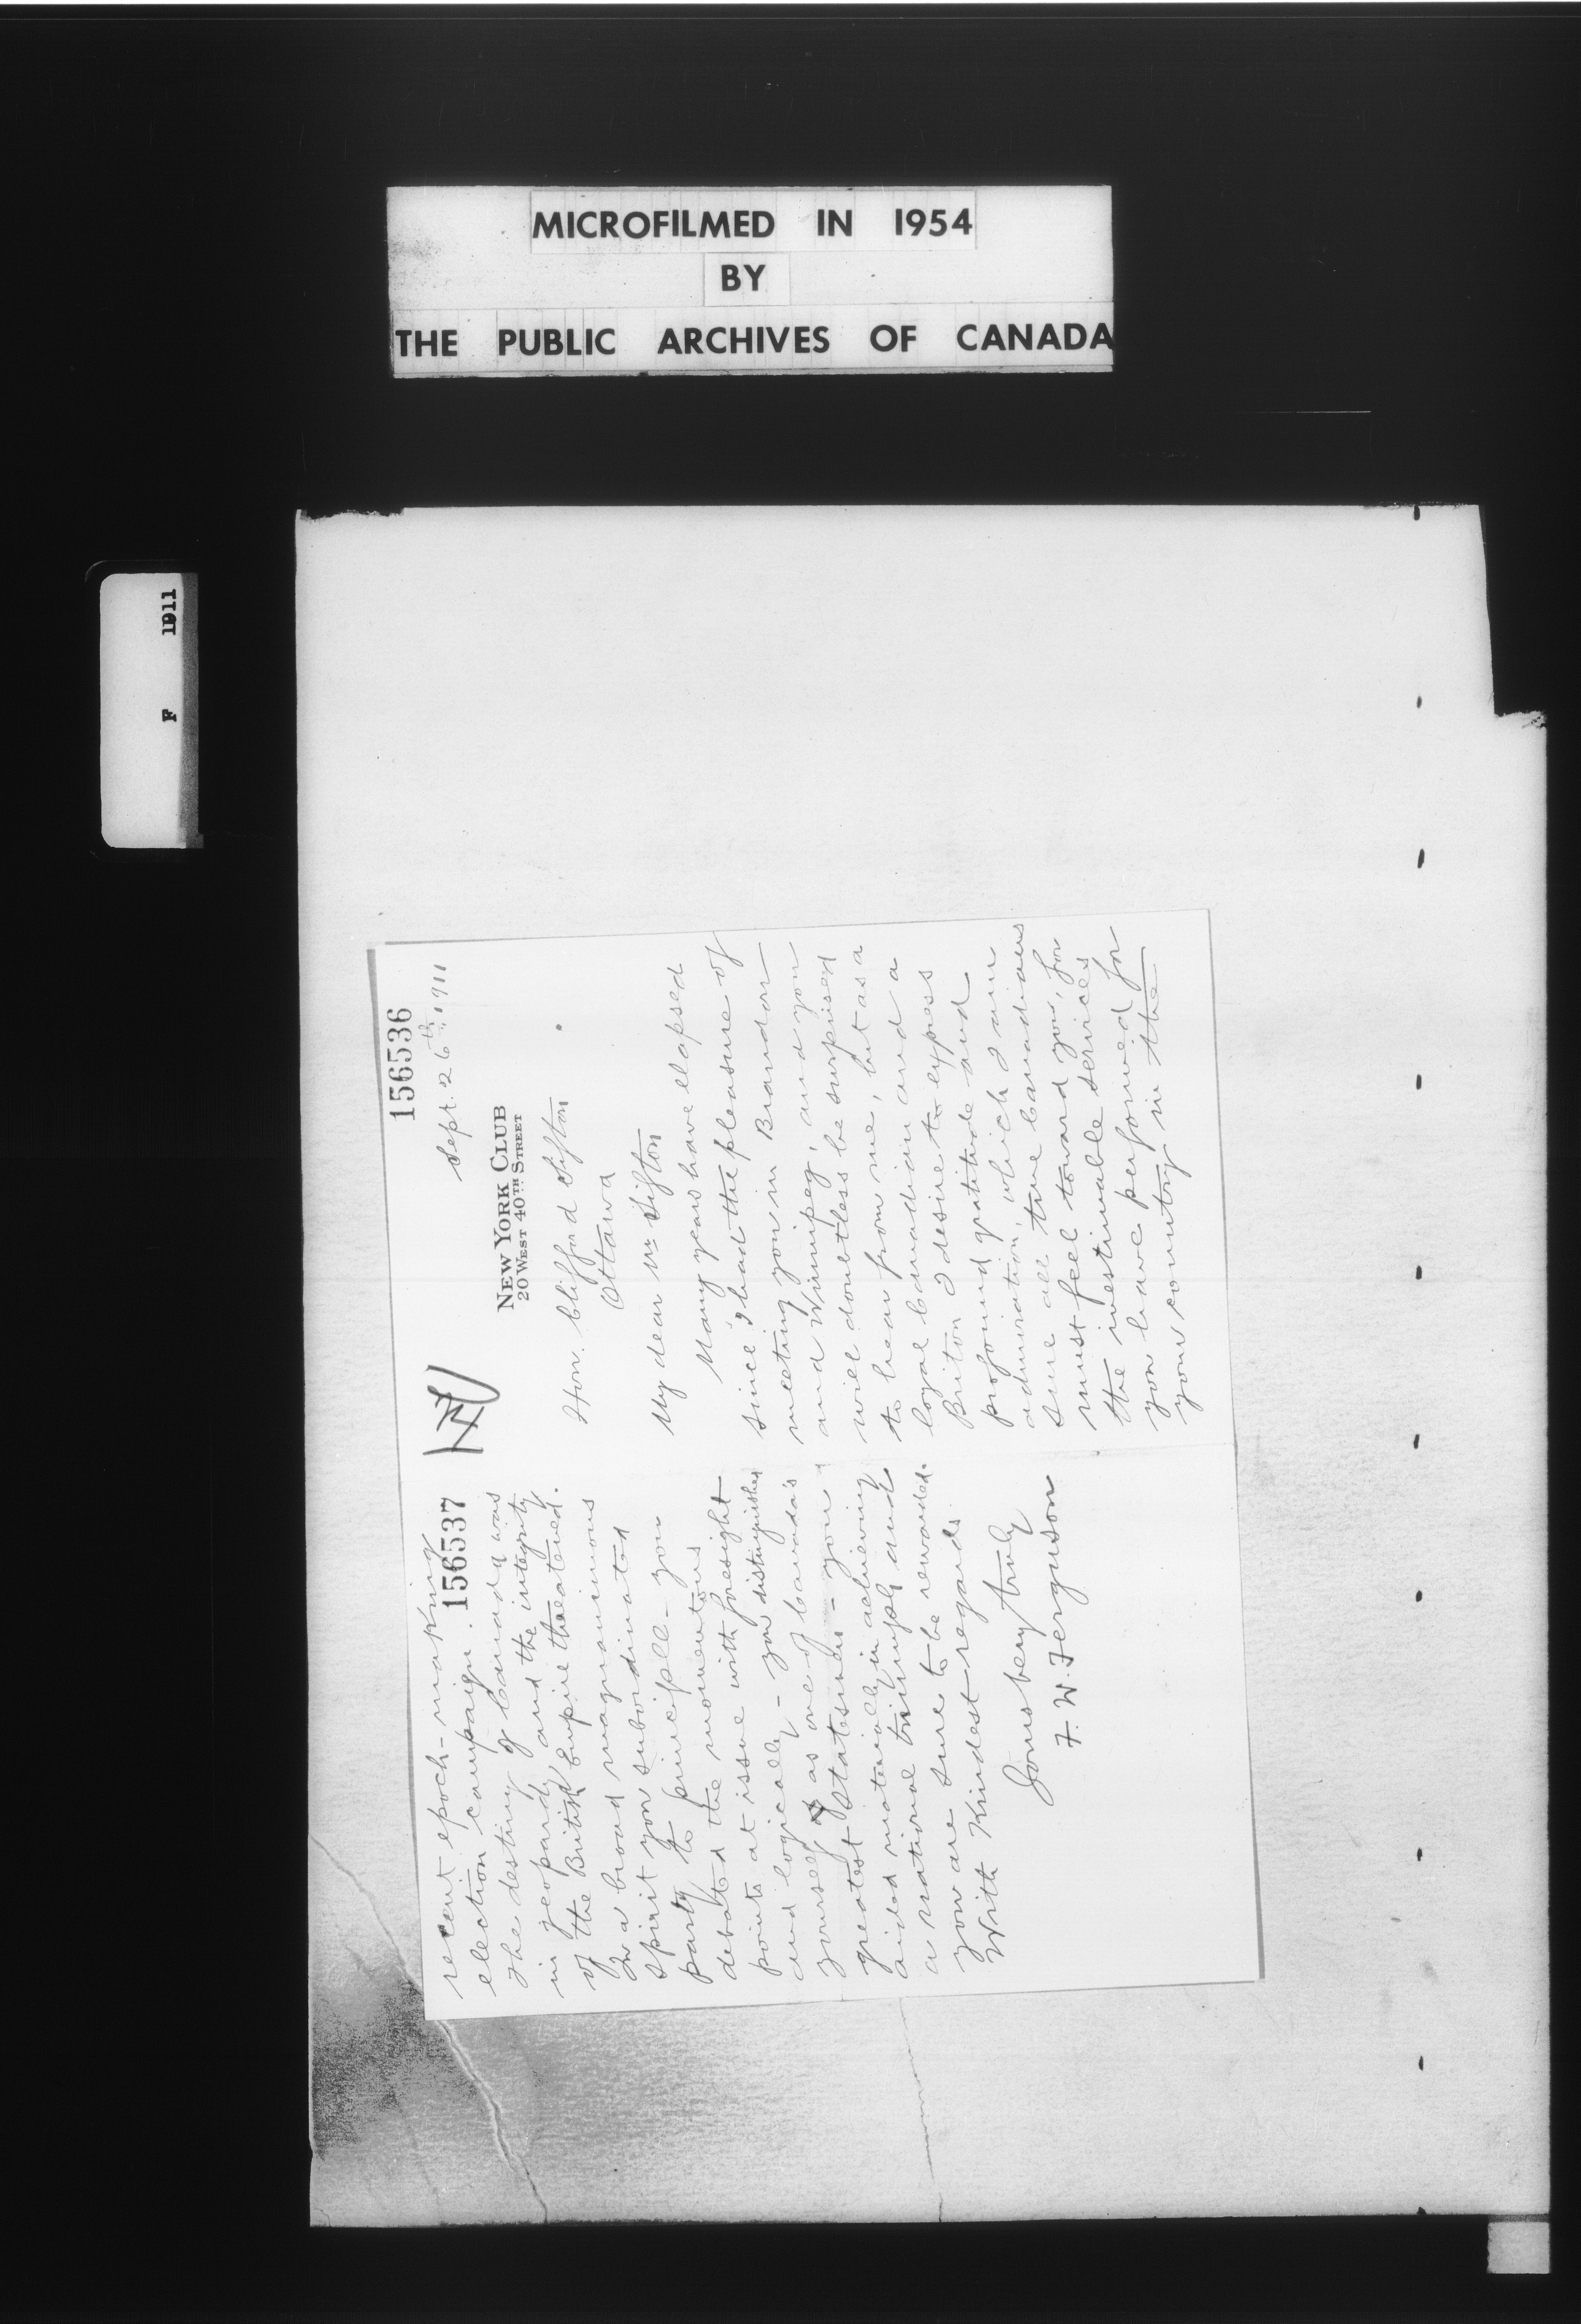 MICROFILMED IN 1954
BY
THE PUBLIC ARCHIVES OF CANADA
F 1911
156536
Sept. 26th 1911
NEW YORK CLUB
20 WEST 40TH STREET
Hon. Clifford Sifton
Ottawa
My dear Mr Sifton
Many years have elapsed
since I had the pleasure of
meeting you in Brandon
and Winnipeg, and you
will doubtless be surprised
to hear from me, but as a
loyal Canadian and a
Briton I desire to express
profound gratitude and
admiration, which I am
sure all true Canadians
must feel toward you, for
the inestimable services
you have performed for
your country in the
156537
recent epoch-making
election campaign.
The destiny of Canada was
in jeopardy and the integrity
of the British Empire threatened.
In a broad magnanimous
spirit you subordinated
party to principle - you
debated the momentous
points at issue with foresight
and logically - you distinguished
yourself as one of Canada's
greatest Statesmen - you
aided materially in achieving
a national triumph and
you are sure to be rewarded.
With Kindest regards
Yours very truly
F. W. Ferguson